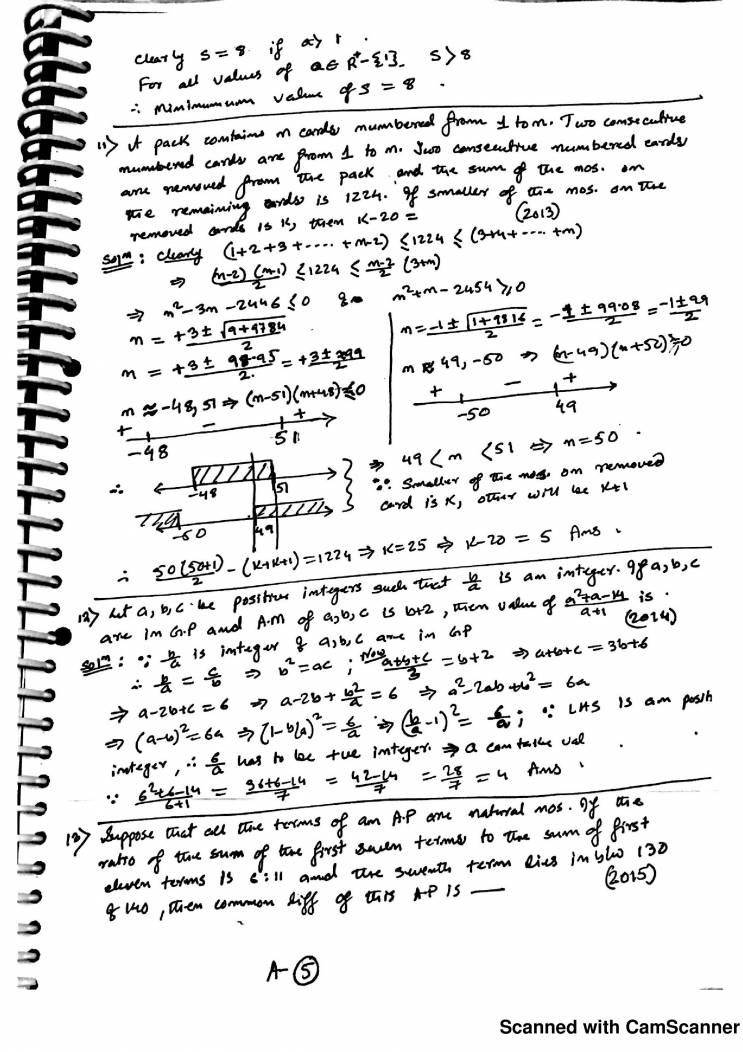 clearly S = 8 if a > 1.
For all values of a ∈ R⁺-{1}. S > 8
∴ Minimumum value of S = 8.
11> A pack contains n cards numbered from 1 to n. Two consecutive
numbered cards are from 1 to n. Two consecutive numbered cards
are removed from the pack and the sum of the nos. on
the remaining cards is 1224. If smaller of the nos. on the
removed cards is K, then K-20 = (2013)
Solⁿ: clearly (1+2+3+-----+n-2) ≤ 1224 ≤ (3+4+-----+n)
⇒ (n-2)(n-1)/2 ≤ 1224 ≤ (n-2)/2 (3+n)
⇒ n²-3n-2446 ≤ 0 & n²+n-2454 ≥ 0
n = +3±√9+9784/2
n = -1±√1+9816/2 = -1±99.08/2 = -1±99/2
n = +3± 98.95/2 = +3±99/2
n ≈ 49, -50 ⇒ (n-49)(n+50) ≥ 0
n ≈ -48, 51 ⇒ (n-51)(n+48) ≤ 0
+ - +
-50 49
+ - +
-48 51
⇒ 49 < n < 51 ⇔ n = 50.
∴ -48 51
∵ Smaller of the nos. on removed
card is K, other will be K+1
-50 49
∴ 50(50+1)/2 - (K+K+1) = 1224 ⇒ K = 25 ⇒ K-20 = 5 Ans.
12> Let a, b, c be positive integers such that b/a is an integer. If a, b, c
are in G.P and A.M of a, b, c is b+2, then value of a²+a-14/a+1 is. (2014)
Solⁿ: ∵ b/a is integer & a, b, c are in GP
∴ b/a = c/b ⇒ b² = ac ; Now a+b+c/3 = b+2 ⇒ a+b+c = 3b+6
⇒ a-2b+c = 6 ⇒ a-2b+b²/a = 6 ⇒ a²-2ab+b² = 6a
⇒ (a-b)² = 6a ⇒ (1-b/a)² = 6/a ⇒ (b/a-1)² = 6/a ; ∵ LHS is am posit
integer, ∴ 6/a has to be +ve integer. ⇒ a can take val
∵ 6²+6-14/6+1 = 36+6-14/7 = 42-14/7 = 28/7 = 4 Ans.
13> Suppose that all the terms of an A.P are natural nos. If the
ratio of the sum of the first seven terms to the sum of first
eleven terms is 6:11 and the seventh term lies in b/w 130
& 140, then common diff of this A-P is —— (2015)
A-⑤
Scanned with CamScanner